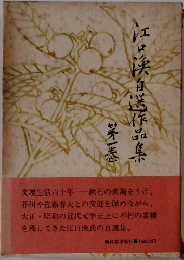 江口渙自選作品集
第一巻
文壇生活六十年──漱石の薫陶をうけ、
芥川や佐藤春夫との交遊を深めながら、
大正・昭和の近代文学史上に不朽の業績
を残してきた江口渙氏の自選集。